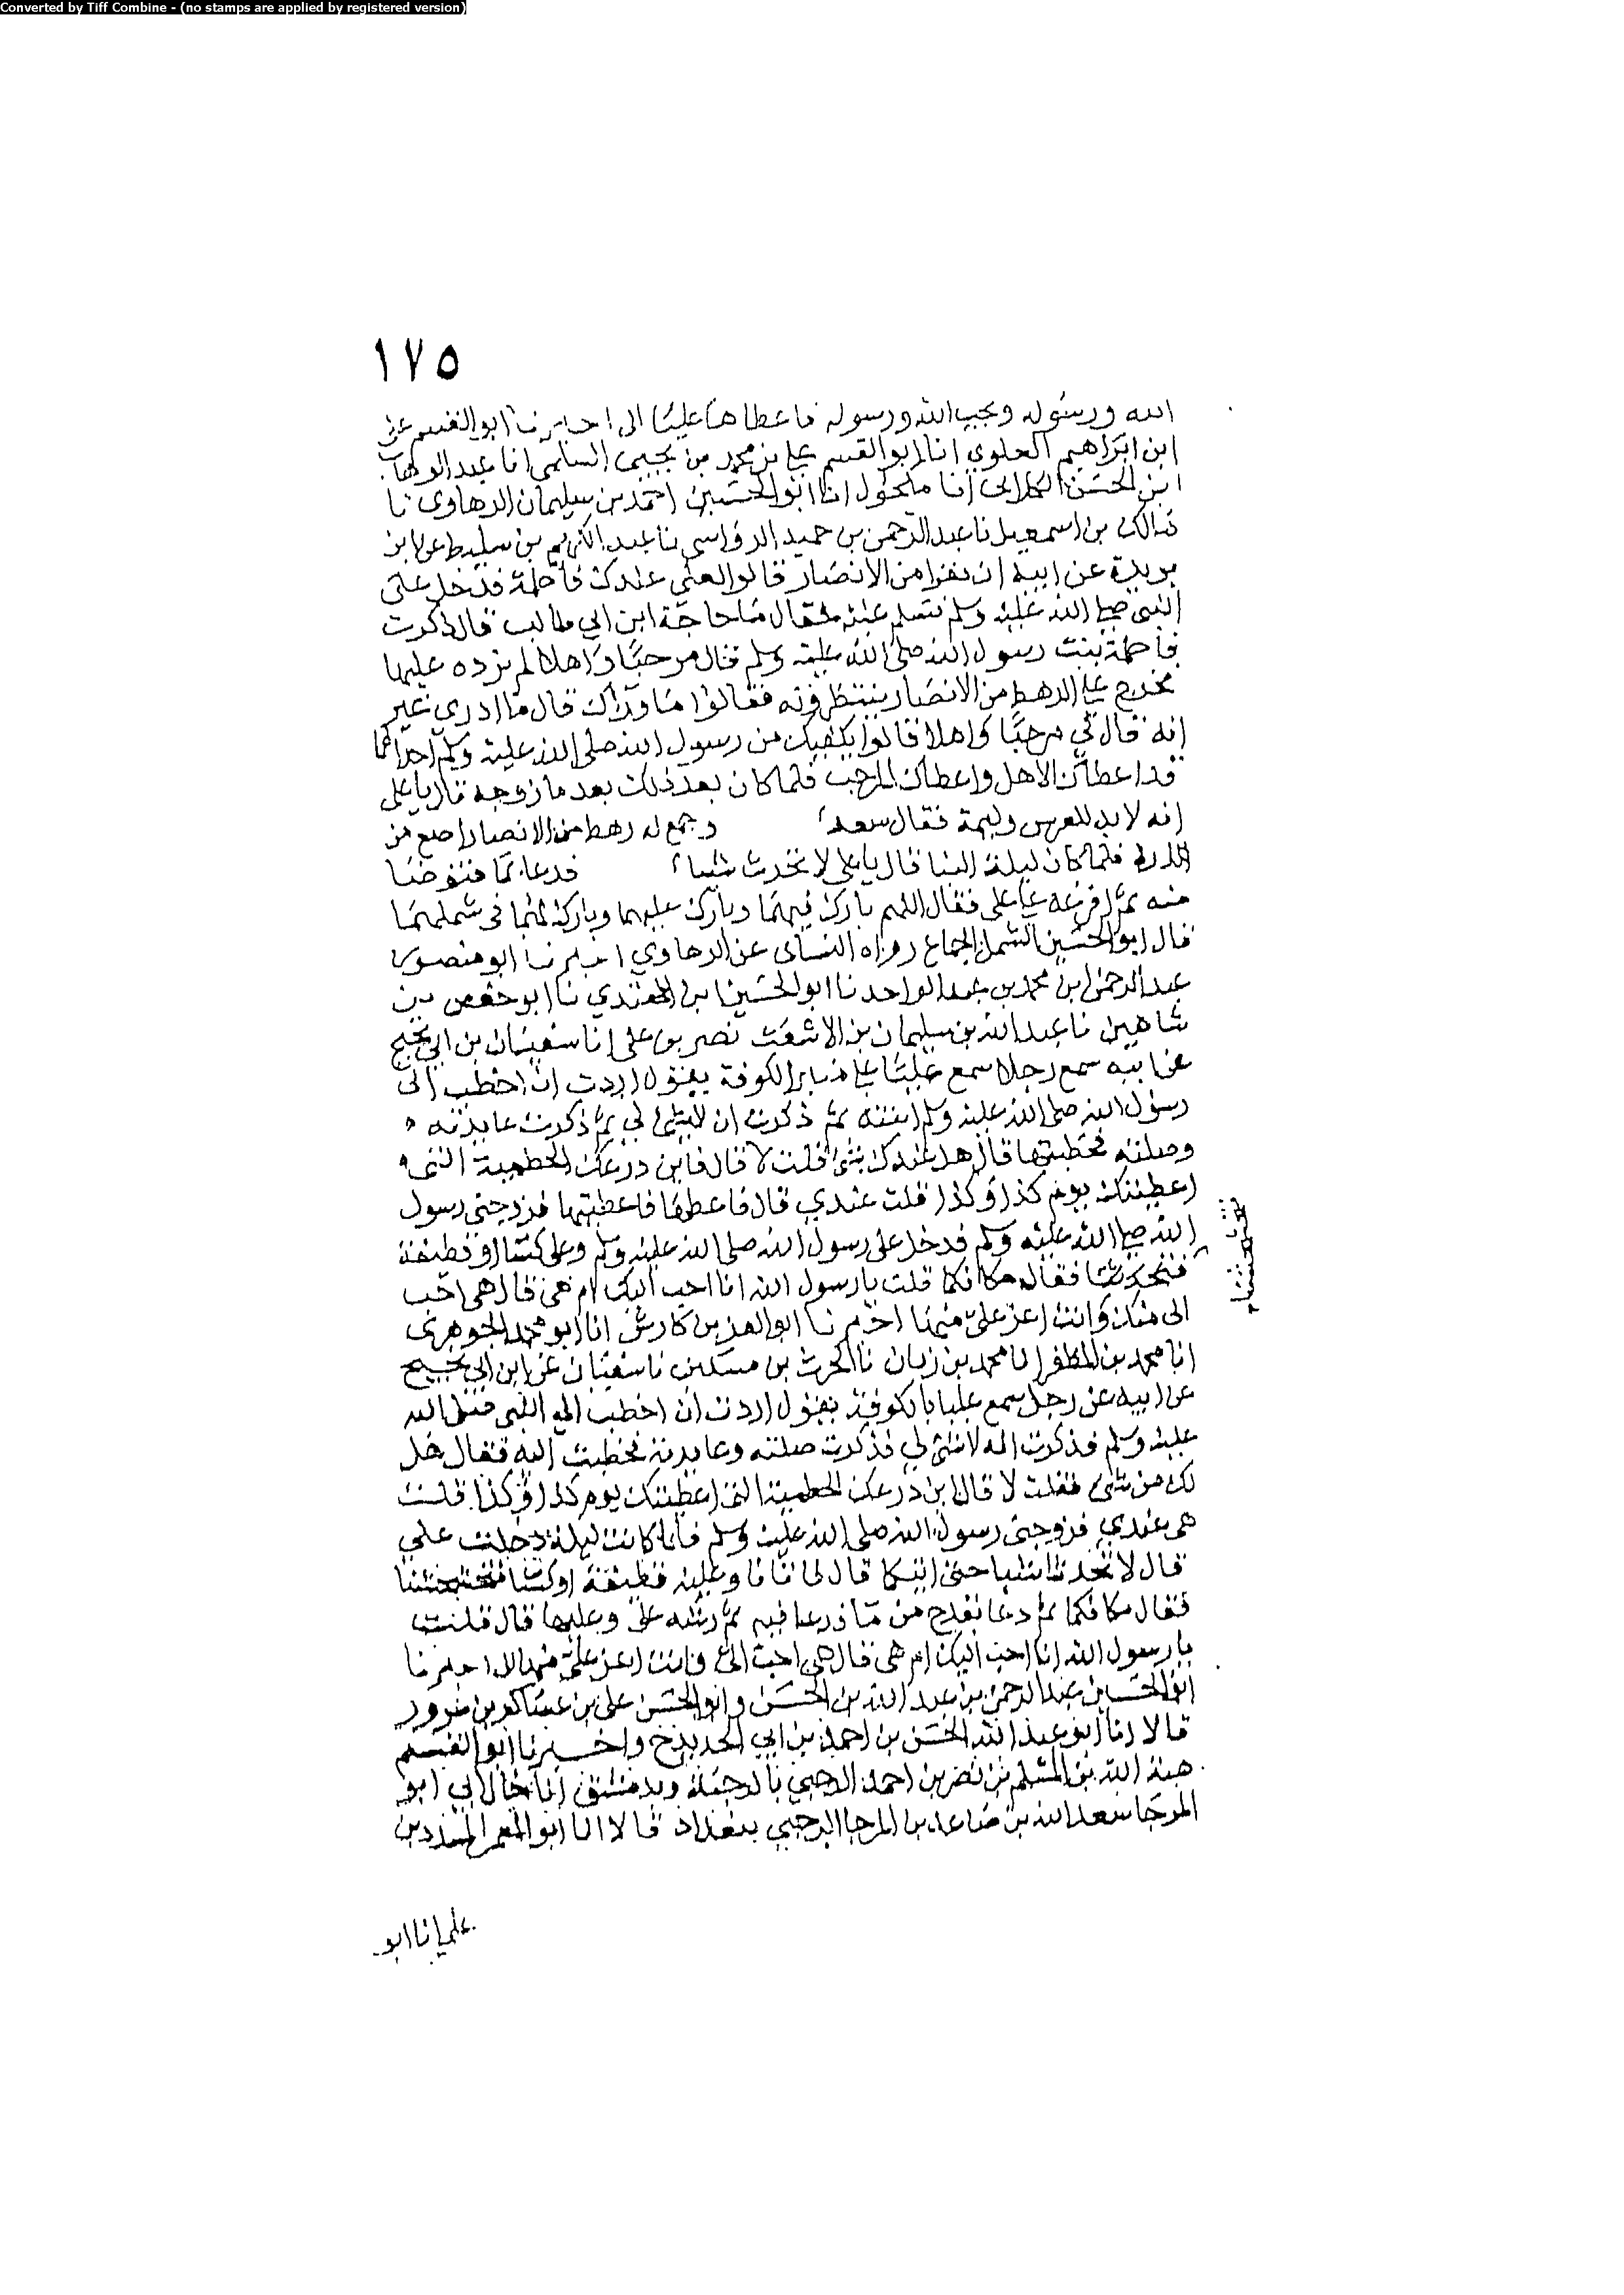 Converted by Tiff Combine - (no stamps are applied by registered version)
١٧٥
الله ورسوله ويحب الله ورسوله فاعطاها عليا الى اخبرنا ابو القسم على
ابن ابراهيم العلوي انا ابو القسم علي بن محمد بن يحيى السلمي انا عبد الوهاب
ابن الحسن الكلابي انا مكحول انا ابو الحسين احمد بن سليمان الرهاوي نا
مالك بن اسمعيل نا عبد الرحمن بن حميد الرواسي نا عبد الكريم بن سليط عن ابن
بريدة عن ابيه ان نفرا من الانصار قالوا لعلي عندك فاطمة فدخل على
النبي صلى الله عليه وسلم فسلم عليه فقال ما حاجة ابن ابي طالب قال ذكرت
فاطمة بنت رسول الله صلى الله عليه وسلم فقال مرحبا واهلا لم يزده عليها
فخرج علي الرهط من الانصار ينتظرونه فقالوا ما وراك قال ما ادري غير
انه قال لي مرحبا واهلا قالوا يكفيك من رسول الله صلى الله عليه وسلم احداهما
قد اعطاك الاهل واعطاك المرحب فلما كان بعد ذلك بعد ما زوجه قال يا علي
انه لابد للعرس وليمة فقال سعد وجمع له رهط من الانصار اصع من
الذرة فلما كان ليلة البنا قال يا علي لا تحدث شيا فدعا بما فتوضا
منه ثم افرغه على علي فقال اللهم بارك فيهما وبارك عليهما وبارك لهما في شملهما
قال ابو الحسين الشمل الجماع رواه النساى عن الرهاوي اخبرنا ابو منصور
عبد الرحمن ابن محمد بن عبد الواحد نا ابو الحسين بن المهتدي نا ابو حفص بن
شاهين نا عبد الله بن سليمان بن الاشعث نصر بن علي انا سفيان بن ابي نجيح
عن ابيه سمع رجلا سمع عليا على منبر الكوفة يقول اردت ان اخطب الى
رسول الله صلى الله عليه وسلم ابنته ثم ذكرت ان لا شئ لي ثم ذكرت عايدته
وصلته فخطبتها قال هل عندك شئ قلت لا قال فاين درعك الحطمية التي
اعطيتك يوم كذا وكذا قلت عندي قال فاعطها فاعطيتها فزوجني رسول
الله صلى الله عليه وسلم فدخل على رسول الله صلى الله عليه وسلم وعلي كسا او قطيفة
فتحشحشنا فقال مكانكما قلت يا رسول الله انا احب اليك ام هي قال هي احب
الى منك وانت اعز علي منها اخبرنا ابو العز بن كادش انا ابو محمد الجوهري
انا محمد بن المظفر انا محمد بن زبان نا الحرث بن مسكين نا سفيان عن ابن ابي نجيح
عن ابيه عن رجل سمع عليا بالكوفة يقول اردت ان اخطب الى النبي صلى الله
عليه وسلم فذكرت انه لا شئ لي فذكرت صلته وعايدته فخطبت اليه فقال هل
لك من شئ فقلت لا قال اين درعك الحطمية التي اعطيتك يوم كذا وكذا قلت
هي عندي فزوجني رسول الله صلى الله عليه وسلم فلما كانت ليلة دخلت علي
قال لا تحدثا شيا حتى اتيكما قال فاتانا وعليه قطيفة او كسا فتحشحشنا
فقال مكانكما ثم دعا بقدح من ما فدعا فيه ثم رشه علي وعليها قال قلت
يا رسول الله انا احب اليك ام هي قال هي احب الي وانت اعز علي منها اخبرنا
ابو الحسين عبد الرحمن بن عبد الله بن الحسن وابو الحسن علي بن عساكر بن سرور
قالا انا ابو عبد الله الحسن بن احمد بن ابي الحديد ح واخبرنا ابو القسم
هبة الله بن المسلم بن نصر بن احمد الرحبي بالرحبة وبدمشق انا خال ابي ابو
المرجا سعد الله بن صاعد بن المرجا الرحبي ببغداد قالا انا ابو المعمر المسدد بن
علي انا ابو